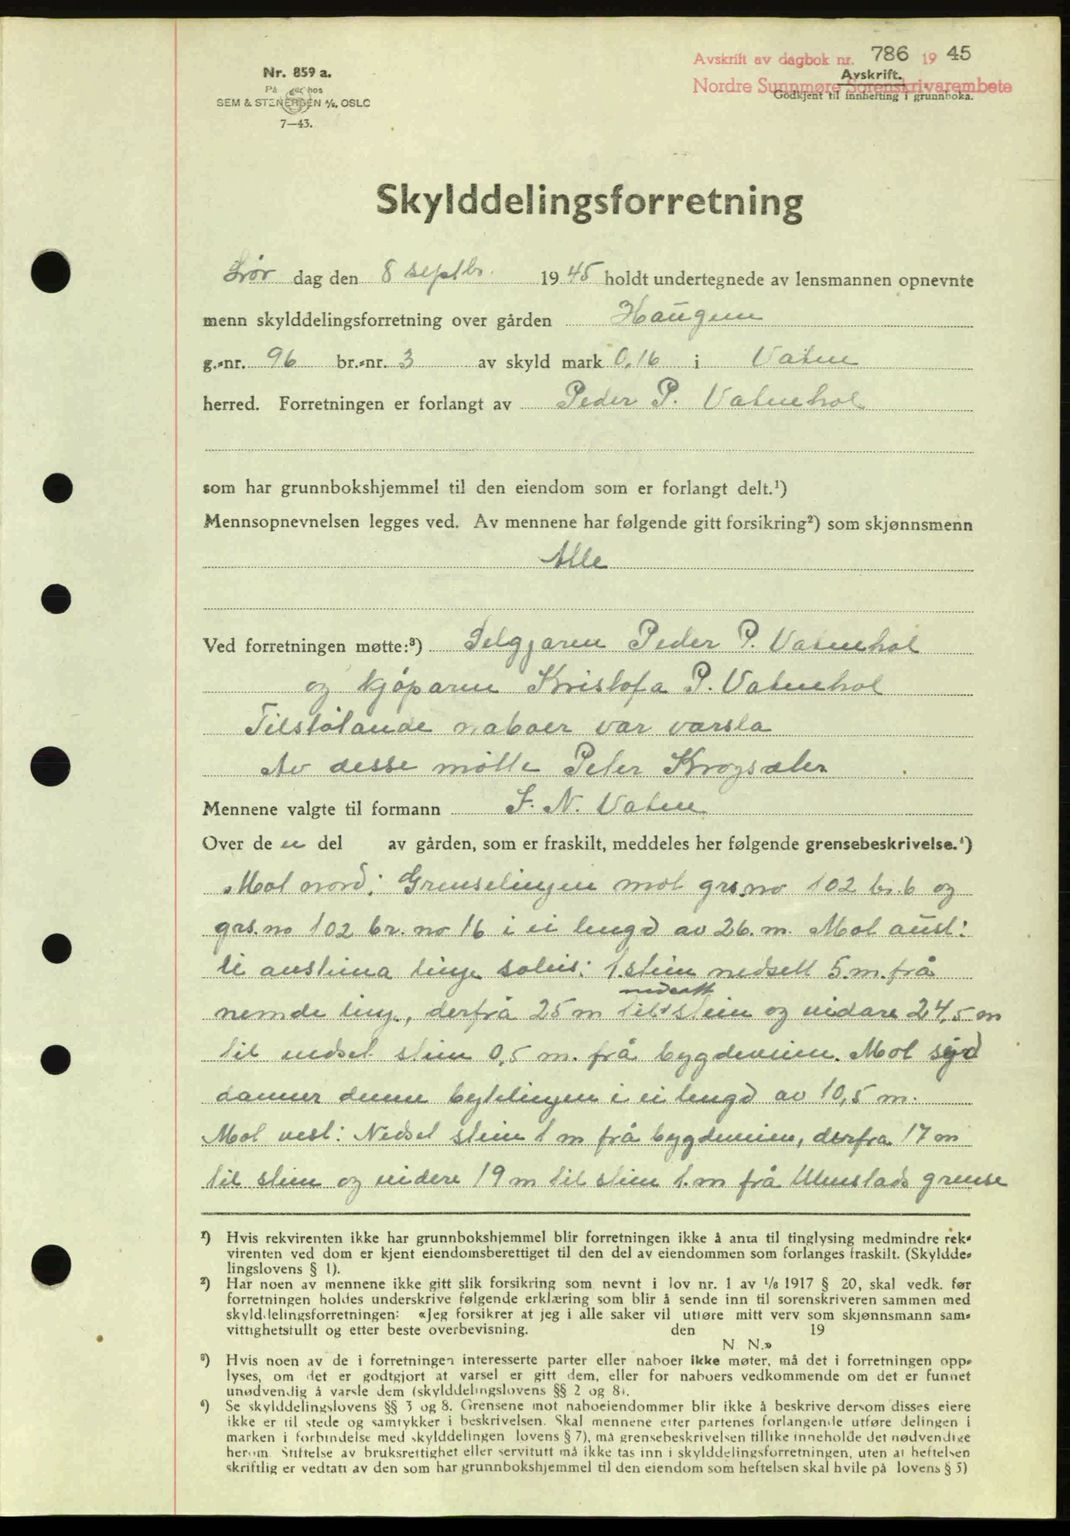 Avskrift av dagbok nr. 786 1945
Nordre Sunnmøre Sorenskrivarembete
Avskrift.
Godkjent til innhefting i grunnboka.
Nr. 859 a.
På lager hos
SEM & STENERSEN A/S, OSLO
7—43.
Skylddelingsforretning
Lør dag den 8 septbr. 1945 holdt undertegnede av lensmannen opnevnte
menn skylddelingsforretning over gården Haugen
g.-nr. 96 br.-nr. 3 av skyld mark 0,16 i Vatne
herred. Forretningen er forlangt av Peder P. Vatnehol
som har grunnbokshjemmel til den eiendom som er forlangt delt.¹)
Mennsopnevnelsen legges ved. Av mennene har følgende gitt forsikring²) som skjønnsmenn
Alle
Ved forretningen møtte:³) Selgjaren Peder P. Vatnehol
og kjøparen Kristofa P. Vatnehol
Tilstøtande naboer var varsla
Av desse møtte Peter Krogsæter
Mennene valgte til formann J. N. Vatne
Over de n del av gården, som er fraskilt, meddeles her følgende grensebeskrivelse.⁴)
Mot nord: Grenselinjen mot grs.no 102 br. 6 og
grs. no 102 br. no 16 i ei lengd av 26. m. Mot aust:
Ei austima linje soleis: 1. stein nedsett 5. m. frå
nemde linje, derfrå 25 m til nedsatt stein og vidare 24,5 m
til nedset stein 0,5 m. frå bygdeveien. Mot syd
danner denne bytelinjen i ei lengd av 10,5 m.
Mot vest: Nedset stein 1 m frå bygdeveien, derfra 17 m
til stein og videre 19 m til stein 1. m frå Ulmstads grense
¹) Hvis rekvirenten ikke har grunnbokshjemmel blir forretningen ikke å anta til tinglysing medmindre rek-
virenten ved dom er kjent eiendomsberettiget til den del av eiendommen som forlanges fraskilt. (Skyldde-
lingslovens § 1).
²) Har noen av mennene ikke gitt slik forsikring som nevnt i lov nr. 1 av 1/6 1917 § 20, skal vedk. før
forretningen holdes underskrive følgende erklæring som blir å sende inn til sorenskriveren sammen med
skylddelingsforretningen: «Jeg forsikrer at jeg i alle saker vil utføre mitt verv som skjønnsmann sam-
vittighetsfullt og etter beste overbevisning. den 19
N. N.»
³) Hvis noen av de i forretningen interesserte parter eller naboer ikke møter, må det i forretningen opp-
lyses, om det er godtgjort at varsel er gitt dem, eller for naboers vedkommende om det er funnet
unødvendig å varsle dem (skylddelingslovens §§ 2 og 8).
⁴) Se skylddelingslovens §§ 3 og 8. Grensene mot naboeiendommer blir ikke å beskrive dersom disses eiere
ikke er til stede og samtykker i beskrivelsen. Skal mennene etter partenes forlangende utføre delingen i
marken i forbindelse med skylddelingen lovens § 7), må grensebeskrivelsen tillike inneholde det nødvendige
herom. Stiftelse av bruksrettighet eller servitutt må ikke tas inn i skylddelingsforretningen, uten at heftelsen
skriftlig er vedtatt av den som har grunnbokshjemmel til den eiendom som heftelsen skal hvile på lovens § 5)